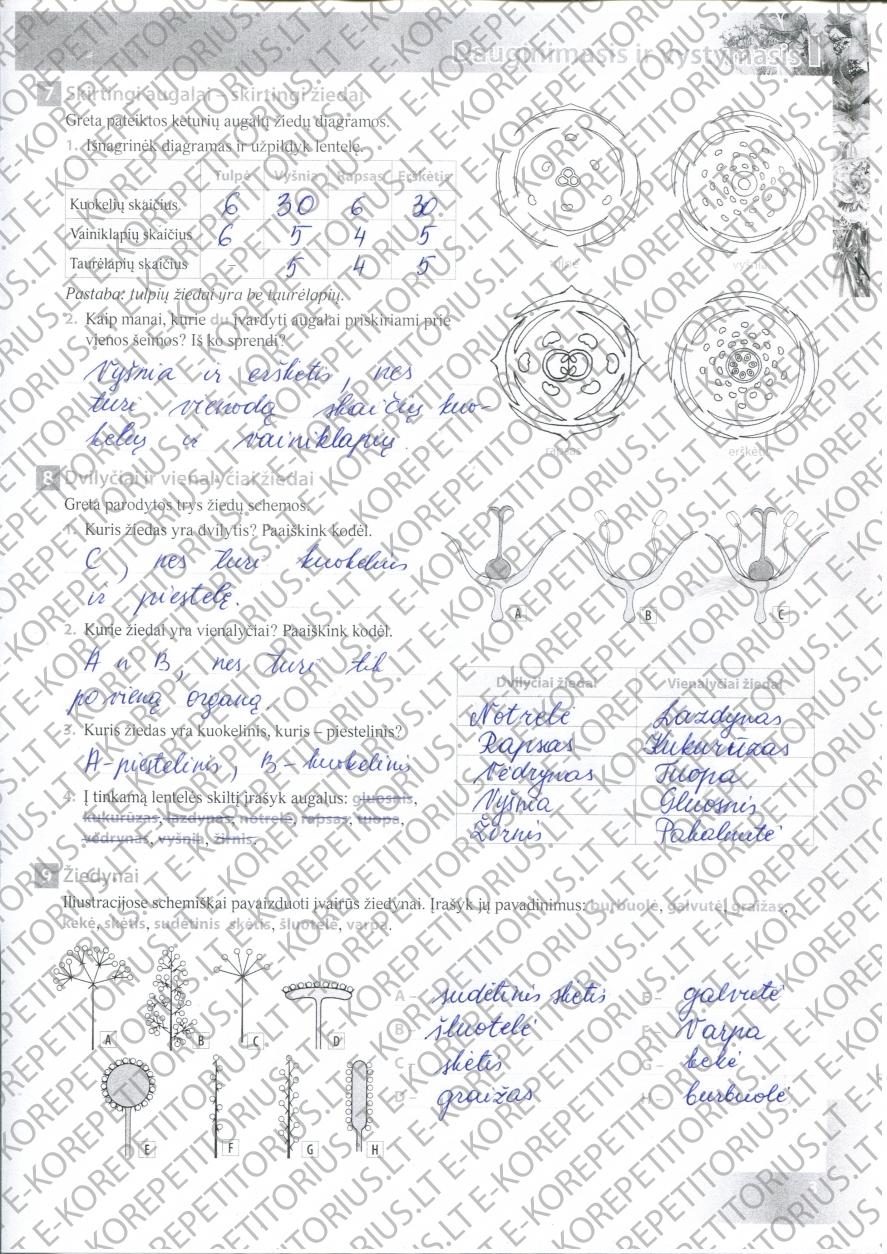 Dauginimasis ir vystymasis I
7 Skirtingi augalai – skirtingi žiedai
Greta pateiktos keturių augalų žiedų diagramos.
1. Išnagrinėk diagramas ir užpildyk lentelę.
Tulpė Vyšnia Rapsas Erškėtis
Kuokelių skaičius 6 30 6 30
Vainiklapių skaičius 6 5 4 5
Taurėlapių skaičius – 5 4 5
Pastaba: tulpių žiedai yra be taurėlapių.
2. Kaip manai, kurie du įvardyti augalai priskiriami prie
vienos šeimos? Iš ko sprendi?
Vyšnia ir erškėtis, nes
turi vienodą skaičių kuo-
kelių ir vainiklapių.
tulpė vyšnia
rapsas erškėtis
8 Dvilyčiai ir vienalyčiai žiedai
Greta parodytos trys žiedų schemos.
1. Kuris žiedas yra dvilytis? Paaiškink kodėl.
C, nes turi kuokelius
ir piestelę.
A B C
2. Kurie žiedai yra vienalyčiai? Paaiškink kodėl.
A ir B, nes turi tik
po vieną organą.
3. Kuris žiedas yra kuokelinis, kuris – piestelinis?
A-piestelinis, B-kuokelinis
4. Į tinkamą lentelės skiltį įrašyk augalus: gluosnis,
kukurūzas, lazdynas, notrelė, rapsas, tuopa,
vėdrynas, vyšnia, žirnis.
Dvilyčiai žiedai Vienalyčiai žiedai
Notrelė Lazdynas
Rapsas Kukurūzas
Vėdrynas Tuopa
Vyšnia Gluosnis
Žirnis Pakalnutė
9 Žiedynai
Iliustracijose schemiškai pavaizduoti įvairūs žiedynai. Įrašyk jų pavadinimus: burbuolė, galvutė, graižas,
kekė, skėtis, sudėtinis skėtis, šluotelė, varpa.
A B C D
E F G H
A – sudėtinis skėtis E – galvutė
B – šluotelė F – Varpa
C – skėtis G – kekė
D – graižas H – burbuolė
E-KOREPETITORIUS.LT